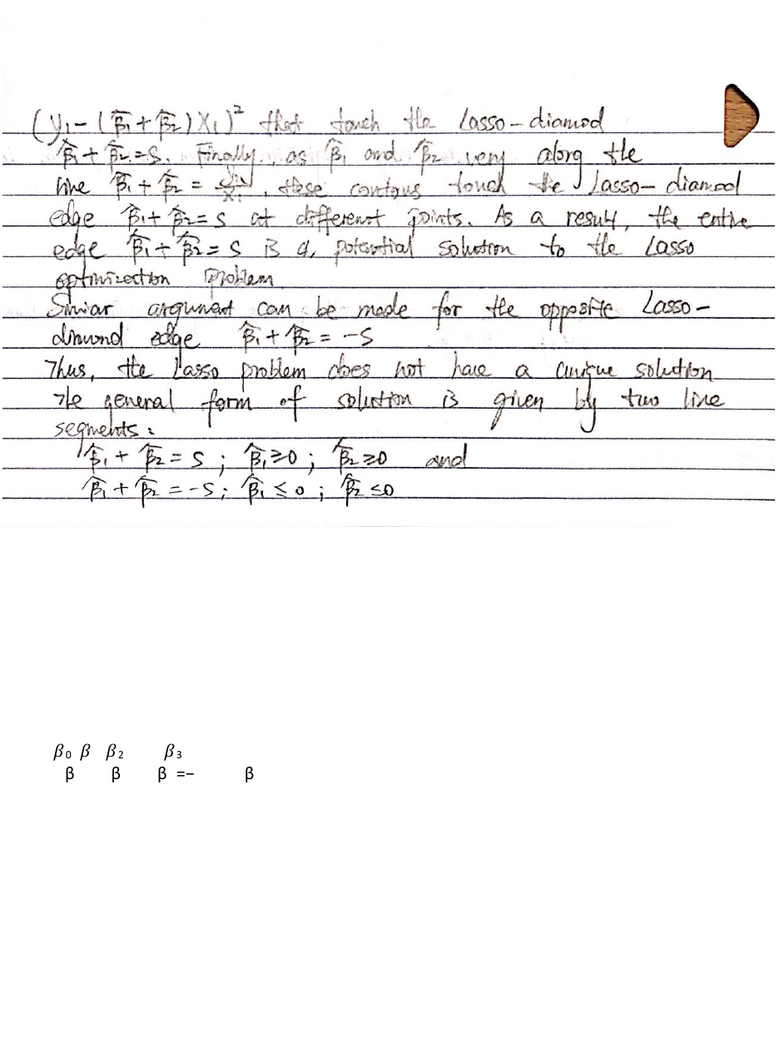 (y₁ - (β̂₁ + β̂₂) x₁)² that touch the Lasso-diamod
β̂₁ + β̂₂ = s. Finally, as β̂₁ and β̂₂ very along the
line β̂₁ + β̂₂ = y₁/x₁, these contous touch the Lasso-diamod
edge β̂₁ + β̂₂ = s at different points. As a result, the entire
edge β̂₁ + β̂₂ = s is a potential solution to the Lasso
optimization problem
Simiar argument can be made for the opposite Lasso-
dimond edge β̂₁ + β̂₂ = -s
Thus, the Lasso problem does not have a unique solution
The general form of solution is given by two line
segments:
β̂₁ + β̂₂ = s ; β̂₁ ≥ 0 ; β̂₂ ≥ 0 and
β̂₁ + β̂₂ = -s ; β̂₁ ≤ 0 ; β̂₂ ≤ 0
β₀ β β₂ β₃
β β β =− β